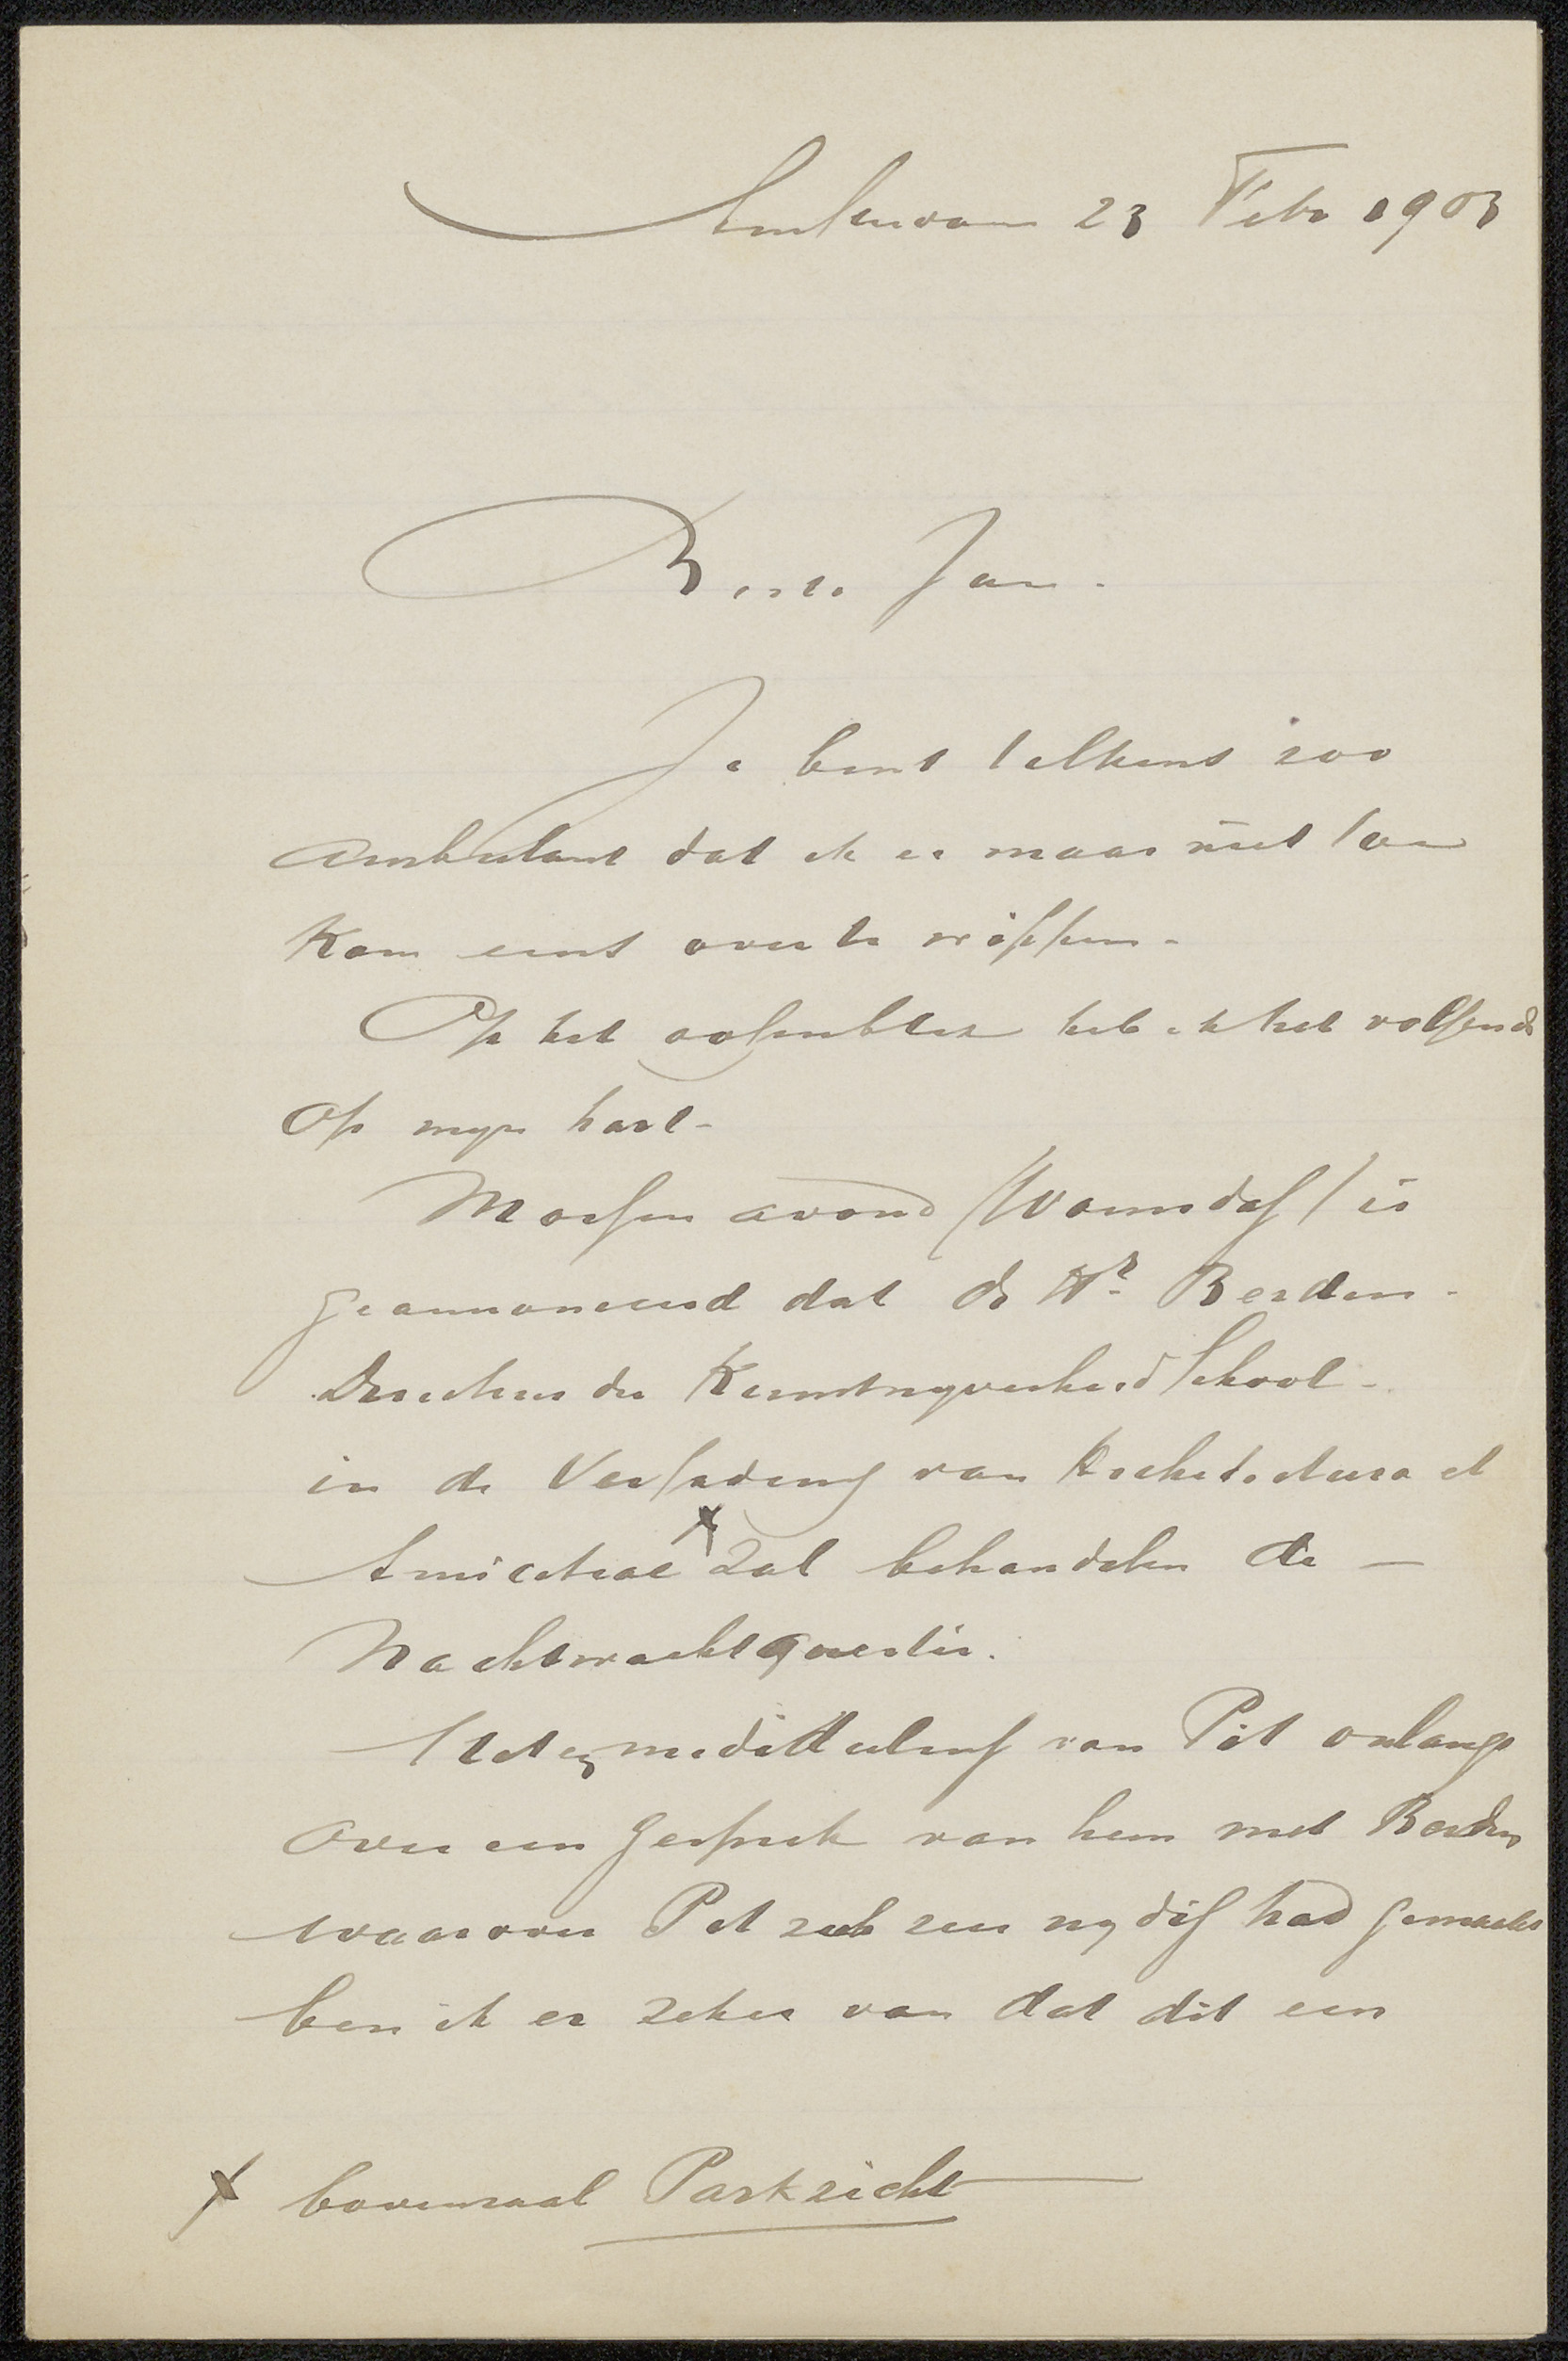 Amsterdam 23 Febr 1903
Beste Jan.
Je bent telkens zoo
ambulant dat ik er maar niet toe
kom eens over te wippen.
Op het oogenblik heb ik het volgende
op mijn hart.
Morgen avond (Woensdag) is
geannonceerd dat de Hr. Berden.
Directeur der Kunstnyverheid School.
in de Vergadering van Architectura et
Amicitiae x zal behandelen de —
Nachtwachtquestie.
Uit de mededeeling van Pit onlangs
over een gesprek van hem met Berden
waarover Pit zich zeer nydig had gemaakt
ben ik er zeker van dat dit een
x bovenzaal Parkzicht